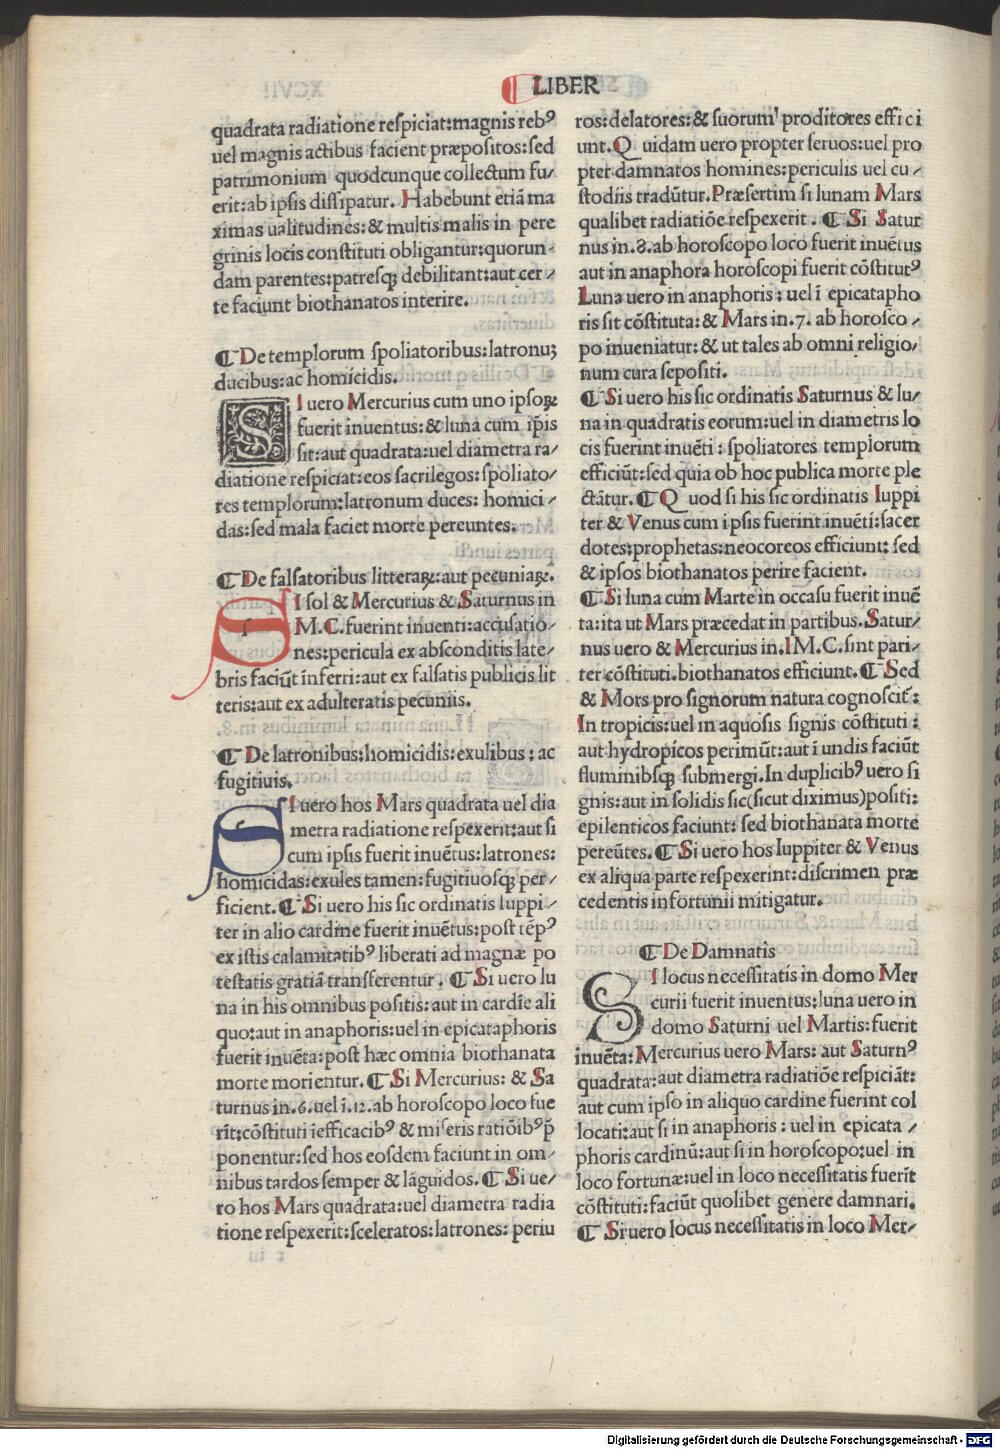 ¶ LIBER
quadrata radiatione respiciat:magnis rebꝰ
uel magnis actibus facient præpositos:sed
patrimonium quodcunque collectum fu/
erit:ab ipsis dissipatur. Habebunt etiā ma
ximas ualitudines:& multis malis in pere
grinis locis constituti obligantur:quorun-
dam parentes:patresqꝫ debilitant:aut cer/
te faciunt biothanatos interire.
¶ De templorum spoliatoribus:latronuꝫ
ducibus:ac homicidis.
SI uero Mercurius cum uno ipsoꝝ
fuerit inuentus:& luna cum ip̄is
sit:aut quadrata:uel diametra ra/
diatione respiciat:eos sacrilegos:spoliato/
res templorum:latronum duces: homici/
das:sed mala faciet morte pereuntes.
¶ De falsatoribus litteraꝝ:aut pecuniaꝝ.
SI sol & Mercurius & Saturnus in
M.C.fuerint inuenti:accusatio/
nes:pericula ex absconditis late/
bris faciūt inferri:aut ex falsatis publicis lit
teris:aut ex adulteratis pecuniis.
¶ De latronibus:homicidis:exulibus : ac
fugitiuis.
SI uero hos Mars quadrata uel dia
metra radiatione respexerit:aut si
cum ipsis fuerit inuētus:latrones:
homicidas:exules tamen:fugitiuosqꝫ per/
ficient.¶ Si uero his sic ordinatis Iuppi/
ter in alio cardine fuerit inuētus:post tēpꝰ
ex istis calamitatibꝰ liberati ad magnæ po
testatis gratiā transferentur . ¶ Si uero lu
na in his omnibus positis:aut in cardīe ali
quo:aut in anaphoris:uel in epicataphoris
fuerit inuēta:post hæc omnia biothanata
morte morientur. ¶ Si Mercurius: & Sa
turnus in.6.uel ī.12.ab horoscopo loco fue
rīt:cōstituti īefficacibꝰ & miseris ratiōibꝰ p̄
ponentur:sed hos eosdem faciunt in om/
nibus tardos semper & lāguidos.¶ Si ue/
ro hos Mars quadrata:uel diametra radia
tione respexerit:sceleratos:latrones: periu
ros:delatores:& suorum proditores effici
unt.Quidam uero propter seruos:uel pro
pter damnatos homines:periculis uel cu/
stodiis tradūtur.Præsertim si lunam Mars
qualibet radiatiōe respexerit . ¶ Si Satur
nus in.8.ab horoscopo loco fuerit inuētus
aut in anaphora horoscopi fuerit cōstitutꝰ
Luna uero in anaphoris : uel ī epicatapho
ris sit cōstituta:& Mars in.7. ab horosco/
po inueniatur:& ut tales ab omni religio/
num cura sepositi.
¶ Si uero his sic ordinatis Saturnus & lu/
na in quadratis eorum:uel in diametris lo
cis fuerint inuēti : spoliatores templorum
efficiūt:sed quia ob hoc publica morte ple
ctātur. ¶ Quod si his sic ordinatis Iuppi
ter & Venus cum ipsis fuerint inuēti:sacer
dotes:prophetas:neocoreos efficiunt: sed
& ipsos biothanatos perire facient.
¶ Si luna cum Marte in occasu fuerit inuē
ta:ita ut Mars præcedat in partibus.Satur/
nus uero & Mercurius in.IM.C.sint pari/
ter cōstituti.biothanatos efficiunt.¶ Sed
& Mors pro signorum natura cognoscit̄:
In tropicis:uel in aquosis signis cōstituti :
aut hydropicos perimūt:aut ī undis faciūt
fluminibsqꝫ submergi.In duplicibꝰ uero si
gnis:aut in solidis sic(sicut diximus)positi:
epilenticos faciunt: sed biothanata morte
pereūtes. ¶ Si uero hos Iuppiter & Venus
ex aliqua parte respexerint:discrimen præ
cedentis infortunii mitigatur.
¶ De Damnatis
SI locus necessitatis in domo Mer
curii fuerit inuentus:luna uero in
domo Saturni uel Martis:fuerit
inuēta:Mercurius uero Mars: aut Saturnꝰ
quadrata:aut diametra radiatiōe respiciāt:
aut cum ipso in aliquo cardine fuerint col
locati:aut si in anaphoris : uel in epicata/
phoris cardinū:aut si in horoscopo:uel in
loco fortunæ:uel in loco necessitatis fuerīt
cōstituti:faciūt quolibet genere damnari.
¶ Si uero locus necessitatis in loco Mer/
Digitalisierung gefördert durch die Deutsche Forschungsgemeinschaft - DFG